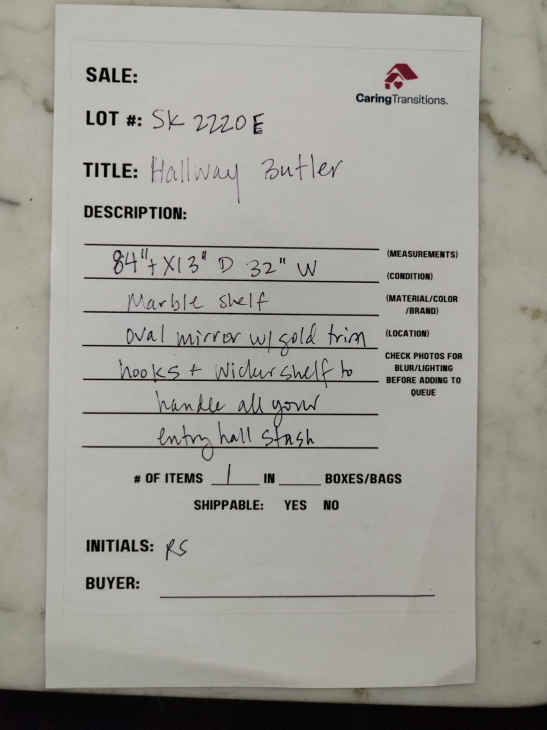 SALE:
CaringTransitions.
LOT #: SK 2220E
TITLE: Hallway Butler
DESCRIPTION:
84"t X13" D 32" W
Marble shelf
oval mirror w/ gold trim
hooks + Wicker shelf to
handle all your
entry hall stash
(MEASUREMENTS)
(CONDITION)
(MATERIAL/COLOR
/BRAND)
(LOCATION)
CHECK PHOTOS FOR
BLUR/LIGHTING
BEFORE ADDING TO
QUEUE
# OF ITEMS 1 IN ____ BOXES/BAGS
SHIPPABLE: YES NO
INITIALS: RS
BUYER: